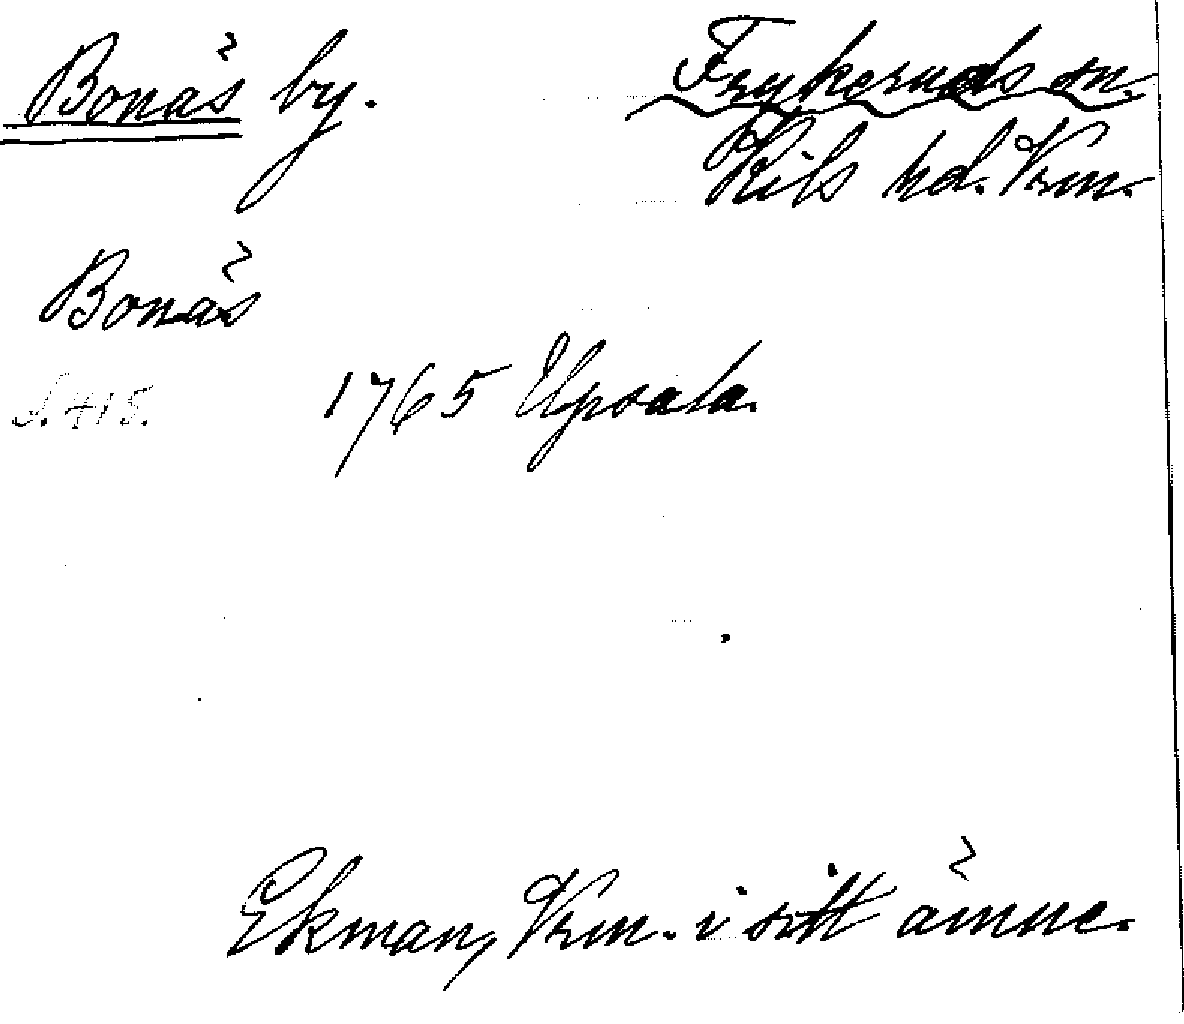 Bonäs by. Frykeruds sn.
Kils hd. Vrm.
Bonäs
S. 415. 1765 Upsala.
Ekman, Vrm. i sitt ämne.